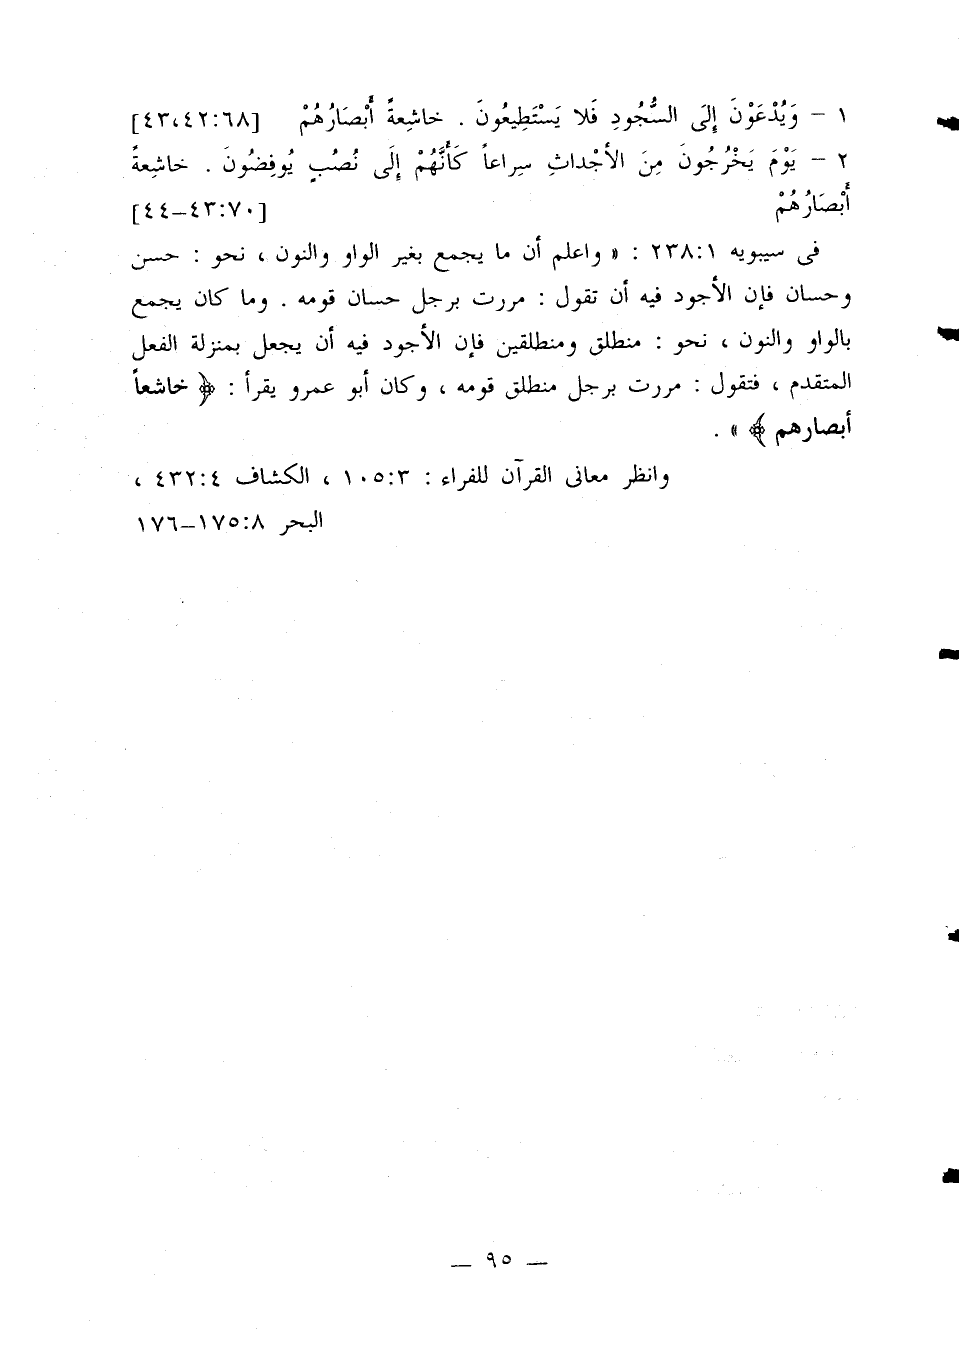 ١ – وَيُدْعَوْنَ إِلَى السُّجُودِ فَلا يَسْتَطِيعُونَ . خاشِعةً أَبْصَارُهُمْ [٤٣،٤٢:٦٨]
٢ – يَوْمَ يَخْرُجُونَ مِنَ الأجْداثِ سِراعاً كَأَنَّهُمْ إِلَى نُصُبٍ يُوفِضُونَ . خاشِعةً
أَبْصَارُهُمْ [٤٣:٧٠–٤٤]
فى سيبويه ٢٣٨:١ : « واعلم أن ما يجمع بغير الواو والنون ، نحو : حسن
وحسان فإن الأجود فيه أن تقول : مررت برجل حسان قومه . وما كان يجمع
بالواو والنون ، نحو : منطلق ومنطلقين فإن الأجود فيه أن يجعل بمنزلة الفعل
المتقدم ، فتقول : مررت برجل منطلق قومه ، وكان أبو عمرو يقرأ : ﴿ خاشعاً
أبصارهم ﴾ » .
وانظر معانى القرآن للفراء : ١٠٥:٣ ، الكشاف ٤٣٢:٤ ،
البحر ١٧٥:٨–١٧٦
— ٩٥ —